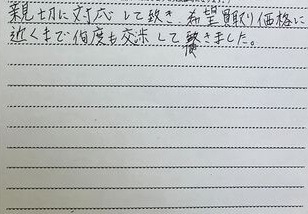 親切に対応して致き 希望買取り価格に
近くまで何度も交渉して致きました。